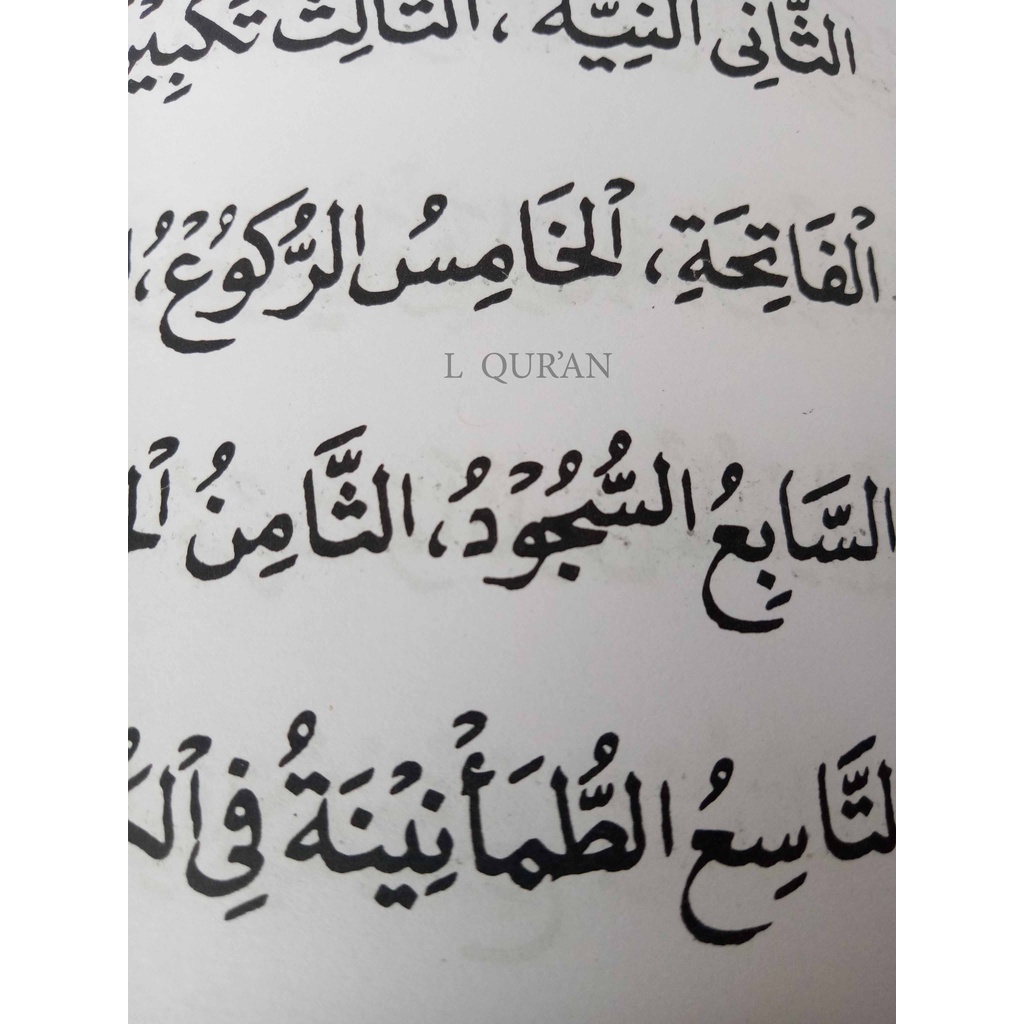 الثَّانِى النِّيَّة ، الثَّالِث
الْفَاتِحَةِ، الْخَامِسُ الرُّكُوْعُ،
L QUR'AN
السَّابِعُ السُّجُوْدُ، الثَّامِنُ
التَّاسِعُ الطُّمَأْنِيْنَةُ فِى